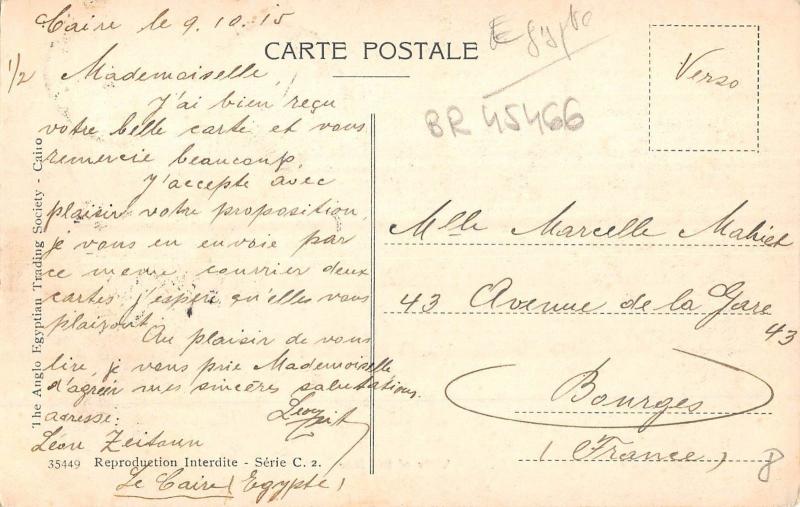 Caire le 9.10.15
Egypte
CARTE POSTALE
1/2 Mademoiselle,
J'ai bien reçu
votre belle carte et vous
remercie beaucoup.
J'accepte avec
plaisir votre proposition,
je vous en envoie par
ce même courrier deux
cartes j'espère qu'elles vous
plairont.
Au plaisir de vous
lire, je vous prie Mademoiselle
d'agréer mes sincères salutations.
adresse:
Léon Zeitoun
Le Caire (Egypte)
The Anglo Egyptian Trading Society - Cairo
35449 Reproduction Interdite - Série C. 2.
BR 45466
Verso
Mlle Marcelle Mahiet
43 Avenue de la Gare
43
Bourges
(France)